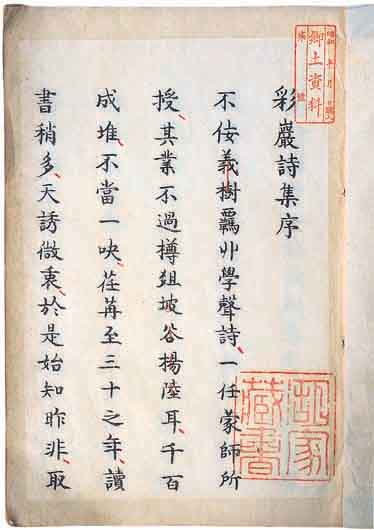 郷土資料
彩巖詩集序
不佞義樹覊丱學聲詩一任蒙師所
授其業不過樽爼坡谷揚陸耳千百
成堆不當一吷荏苒至三十之年讀
書稍多天誘微衷於是始知昨非取
家藏書